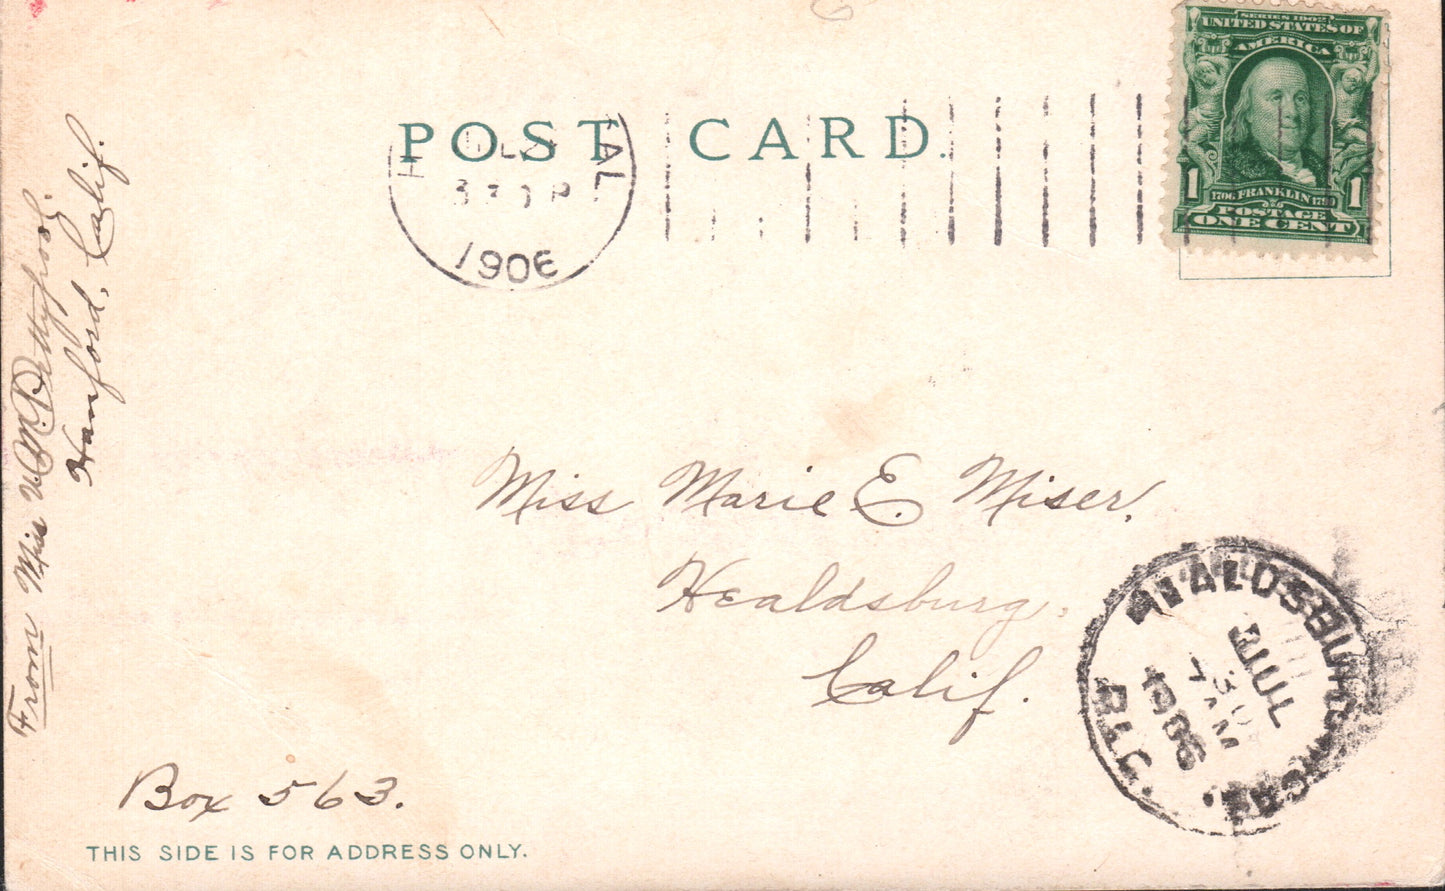 POST CARD.
SERIES 1902
UNITED STATES OF
AMERICA
1 1
1706 FRANKLIN 1790
POSTAGE
ONE CENT
1906
From Miss
Hanford, Calif.
Miss Marie E. Miser,
Healdsburg,
Calif.
HEALDSBURG CAL.
JUL
30
7 AM
1906
REC'D.
Box 563.
THIS SIDE IS FOR ADDRESS ONLY.